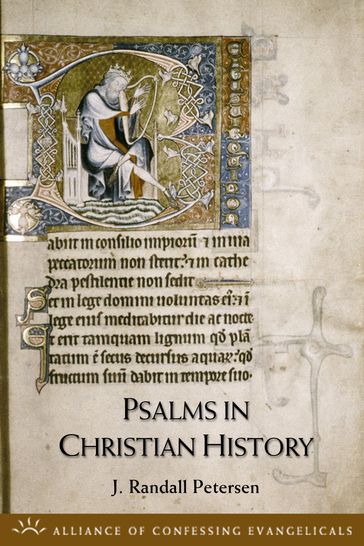 abiit in consilio impiorū ⁊ in uia
peccatorum non stetit: ⁊ in cathe
dra pestilentie non sedit
Set in lege domini uoluntas ei: ⁊ ī
lege eius meditabitur die ac nocte
Et erit tamquam lignum qđ plā
tatum ē secus decursus aquar: qđ
fructum suū dabit in tempore suo
PSALMS IN
CHRISTIAN HISTORY
J. Randall Petersen
ALLIANCE OF CONFESSING EVANGELICALS